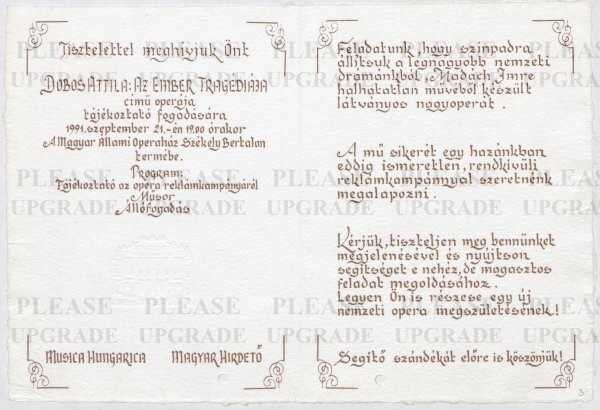 Tisztelettel meghívjuk Önt
DOBOS ATTILA: AZ EMBER TRAGÉDIÁJA
című operája
tájékoztató fogadására
1991. szeptember 21.-én 19.00 órakor
A Magyar Állami Operaház Székely Bertalan
termébe.
PROGRAM:
Tájékoztató az opera reklámkampányáról
Műsor
Állófogadás
MUSICA HUNGARICA MAGYAR HIRDETŐ
Feladatunk, hogy színpadra
állítsuk a legnagyobb nemzeti
drámánkból, Madách Imre
halhatatlan művéből készült
látványos nagyoperát.
A mű sikerét egy hazánkban
eddig ismeretlen, rendkívüli
reklámkampánnyal szeretnénk
megalapozni.
Kérjük, tiszteljen meg bennünket
megjelenésével és nyújtson
segítséget e nehéz, de magasztos
feladat megoldásához.
Legyen Ön is részese egy új
nemzeti opera megszületésének!
Segítő szándékát előre is köszönjük!
3.
PLEASE PLEASE PLEASE PLEASE
UPGRADE UPGRADE UPGRADE UPGRADE
PLEASE PLEASE PLEASE PLEASE
UPGRADE UPGRADE UPGRADE UPGRADE
PLEASE PLEASE PLEASE PLEASE
UPGRADE UPGRADE UPGRADE UPGRADE